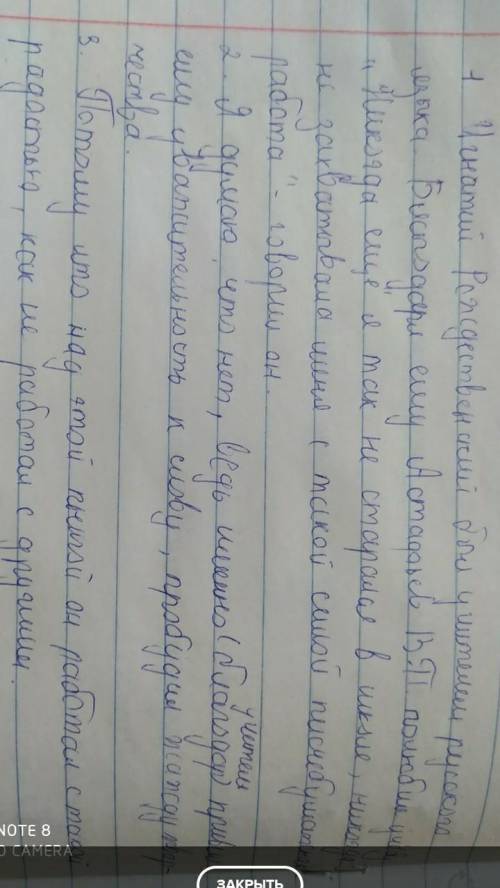 1 Игнатий Рождественский был учителем русского
языка. Благодаря ему Астафьев В.П. полюбил
"Никогда еще я так не старался в школе, никогда
не захватывала меня с такой силой письмобумажная
работа" - говорил он.
2. Я думаю, что нет, ведь именно (благодаря) учитель
ему уважительность к слову, пробудил жажду твор-
чества.
3. Потому что над этой книгой он работал с такой
радостью, как не работал с другими.
NOTE 8
O CAMERA
ЗАКРЫТЬ